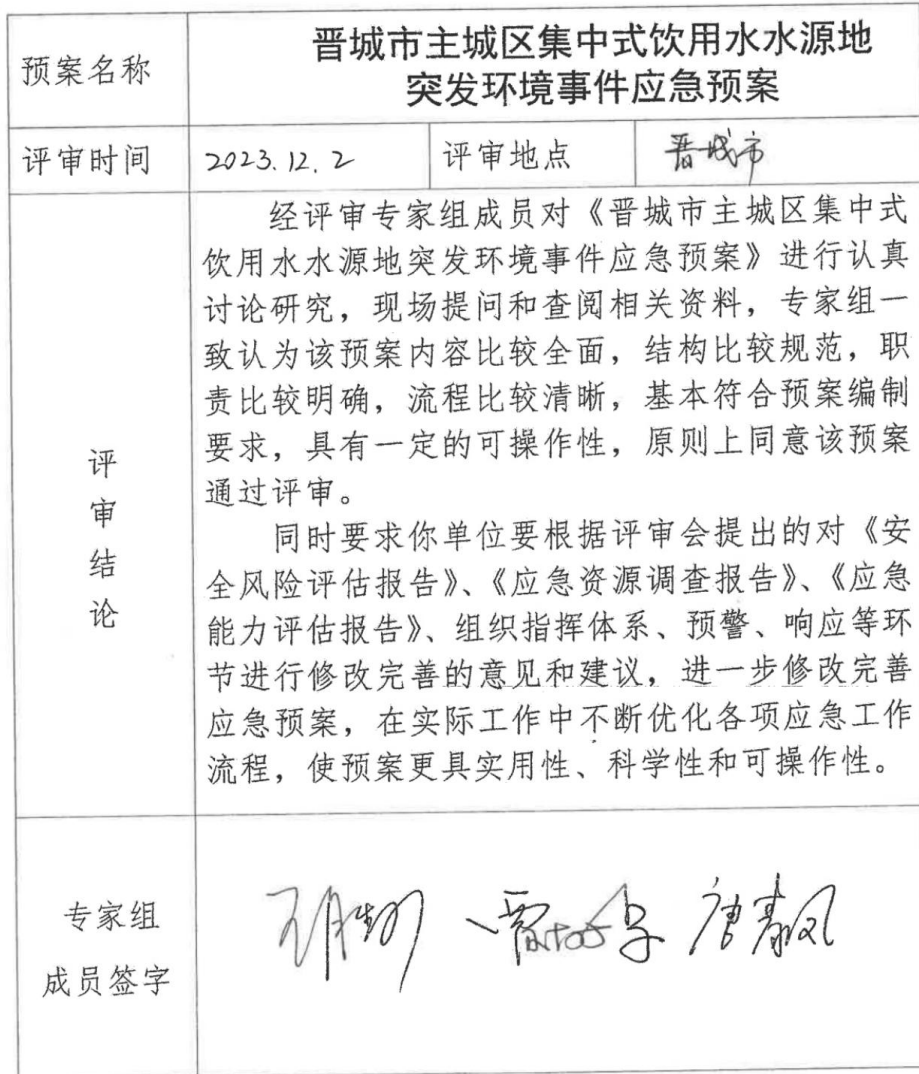 预案名称
晋城市主城区集中式饮用水水源地
突发环境事件应急预案
评审时间
2023.12.2
评审地点
晋城市
评审结论
经评审专家组成员对《晋城市主城区集中式
饮用水水源地突发环境事件应急预案》进行认真
讨论研究，现场提问和查阅相关资料，专家组一
致认为该预案内容比较全面，结构比较规范，职
责比较明确，流程比较清晰，基本符合预案编制
要求，具有一定的可操作性，原则上同意该预案
通过评审。
同时要求你单位要根据评审会提出的对《安
全风险评估报告》、《应急资源调查报告》、《应急
能力评估报告》、组织指挥体系、预警、响应等环
节进行修改完善的意见和建议，进一步修改完善
应急预案，在实际工作中不断优化各项应急工作
流程，使预案更具实用性、科学性和可操作性。
专家组
成员签字
唐青凤